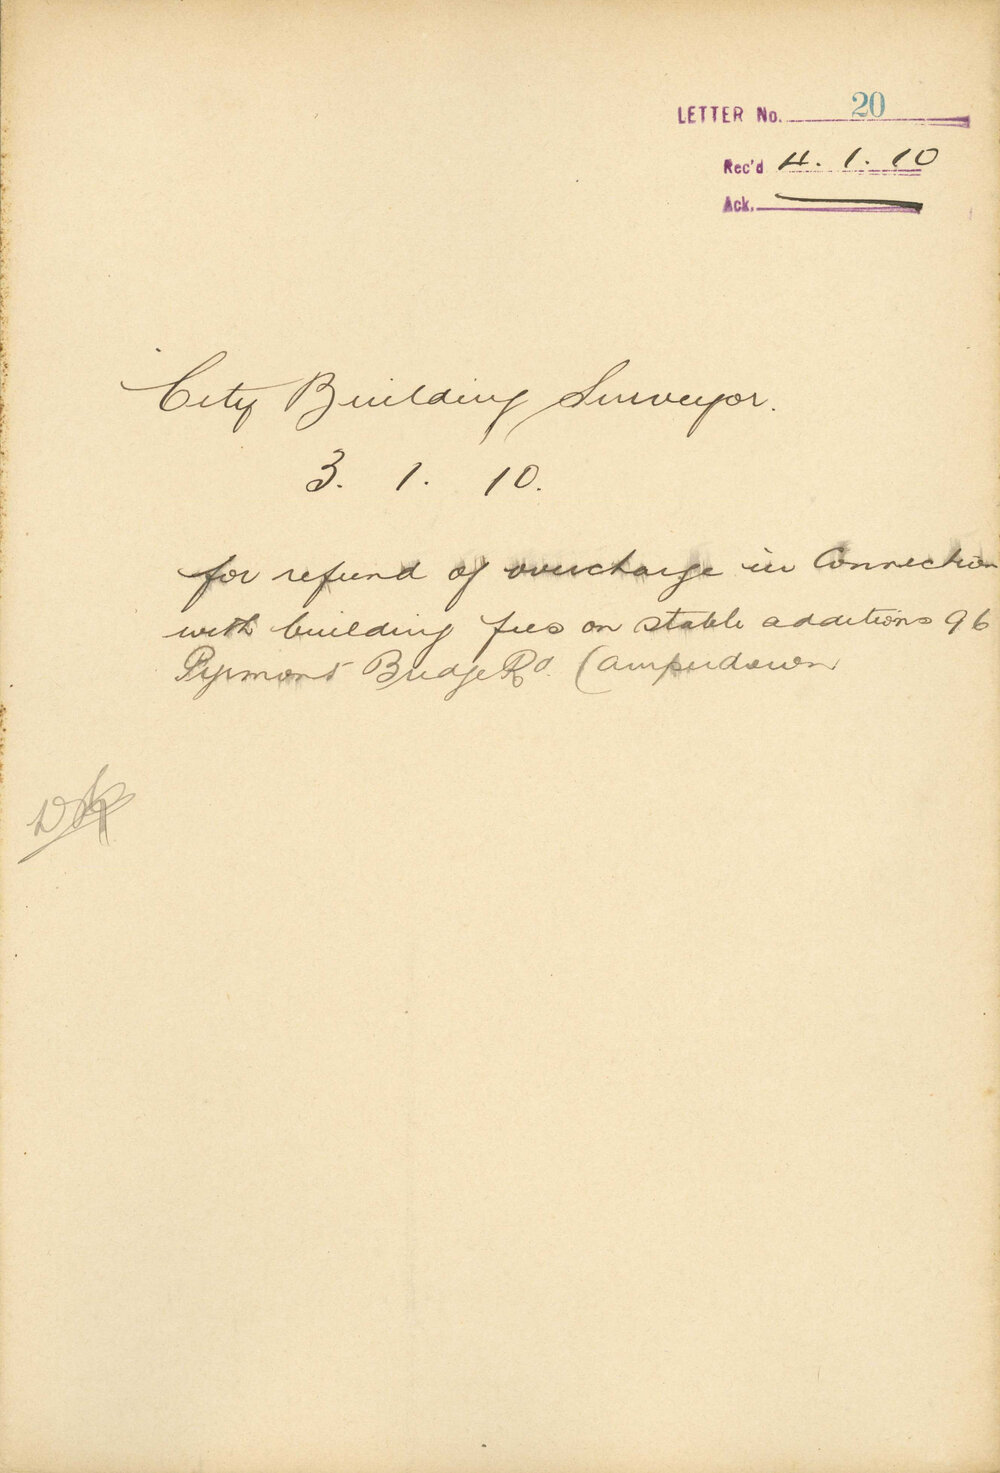 LETTER No. 20
Rec'd 4. 1. 10
Ack.
City Building Surveyor.
3. 1. 10.
for refund of overcharge in Connection
with building fees on stable additions 96
Pyrmont Bridge Rd. Camperdown